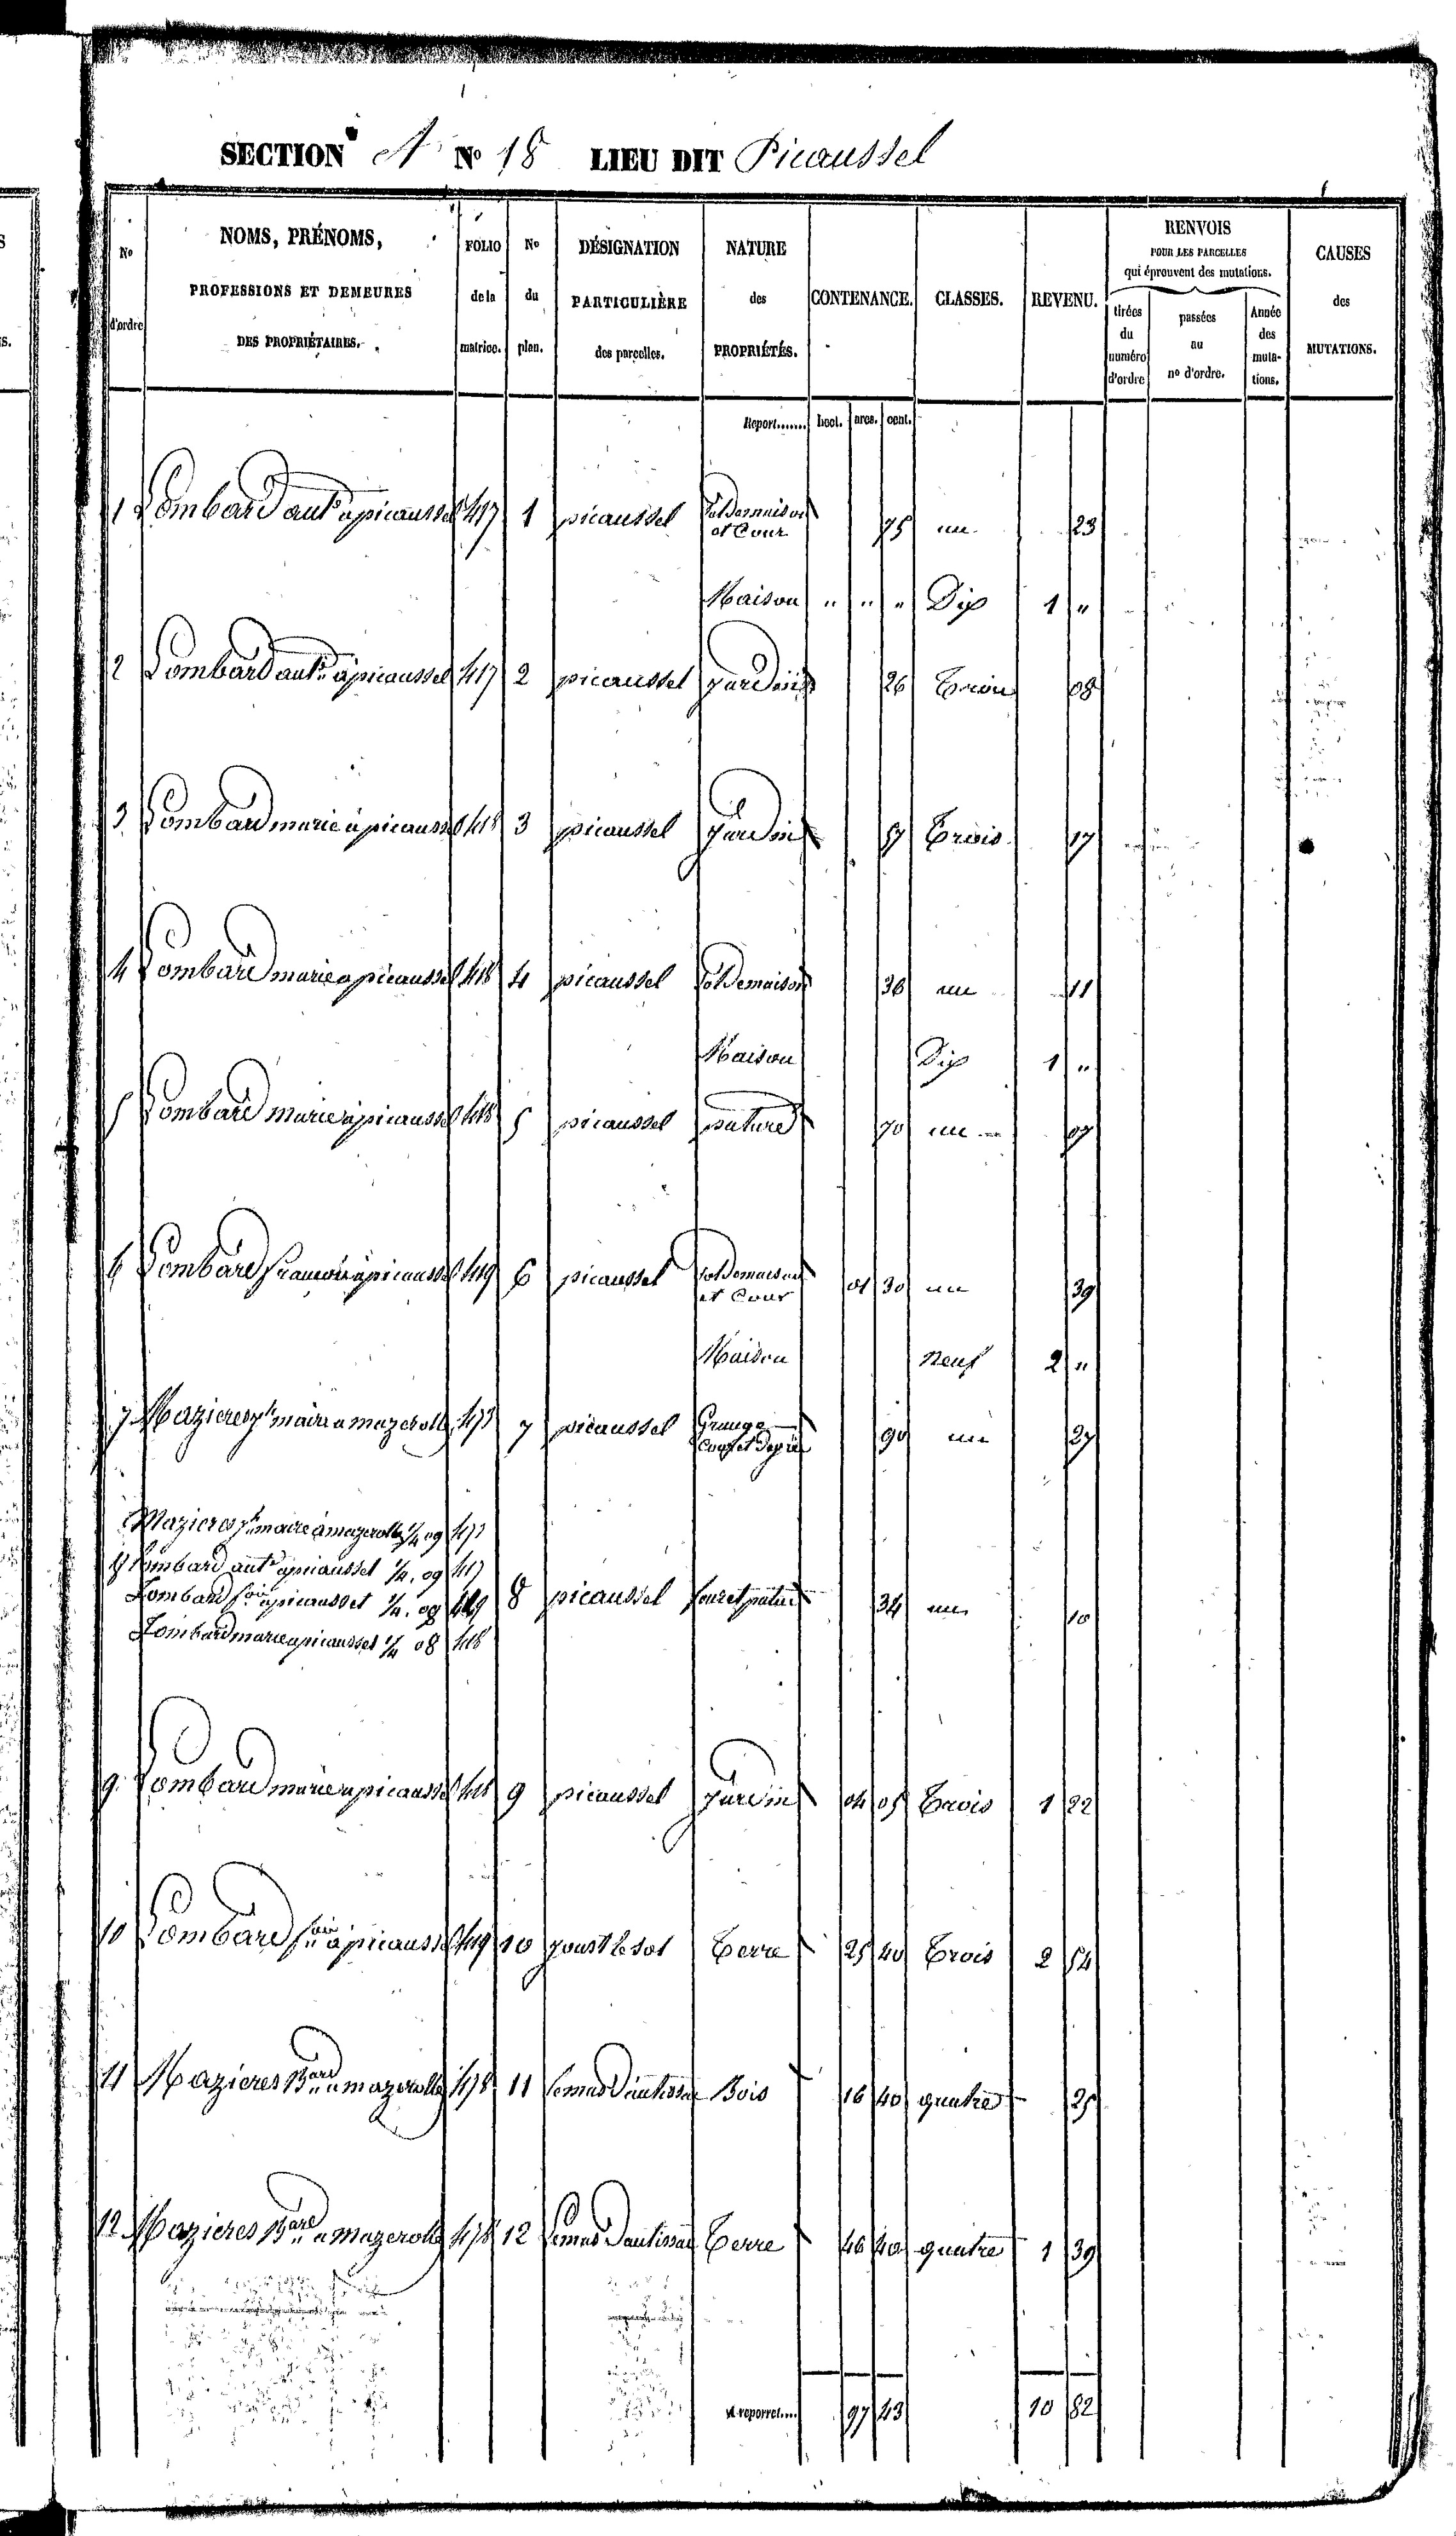 SECTION A No 18 LIEU DIT Picaussel
No d'ordre
NOMS, PRÉNOMS,
PROFESSIONS ET DEMEURES
DES PROPRIÉTAIRES.
FOLIO de la matrice.
No du plan.
DÉSIGNATION PARTICULIÈRE des parcelles.
NATURE des PROPRIÉTÉS.
CONTENANCE.
CLASSES.
REVENU.
RENVOIS
POUR LES PARCELLES
qui éprouvent des mutations.
tirées du numéro d'ordre
passées au no d'ordre.
Année des mutations.
CAUSES des MUTATIONS.
Report....... hect. ares. cent.
1 Lombard ante a picaussel 417 1 picaussel Sol de maison
et Cour 75 un 23
Maison " " " Dix 1 "
2 Lombard ante a picaussel 417 2 picaussel jardin 26 Trois 08
3 Lombard marie a picaussel 418 3 picaussel Jardin 57 Trois 17
4 Lombard marie a picaussel 418 4 picaussel Sol de maison 36 un 11
Maison Dix 1 "
5 Lombard marie a picaussel 418 5 picaussel pature 70 un 07
6 Lombard francois a picaussel 419 6 picaussel Sol de maison
et Cour 01 30 un 39
Maison Neuf 2 "
7 Mazieres maire a mazerolle 473 7 picaussel Grange
90 un 27
Mazieres maire a mazerolle 1/4 09 473
8 Lombard ante a picaussel 1/4. 09 417
Lombard fois a picaussel 1/4. 08 419 8 picaussel four et pature 34 un 10
Lombard marie a picaussel 1/4 08 418
9 Lombard marie a picaussel 418 9 picaussel Jardin 04 05 Trois 1 22
10 Lombard fois a picaussel 419 10 Terre 25 40 Trois 2 54
11 Mazieres Bard a mazerolle 478 11 Bois 16 40 quatre 25
12 Mazieres Bard a mazerolle 478 12 Terre 46 40 quatre 1 39
A reporter.... 97 43 10 82